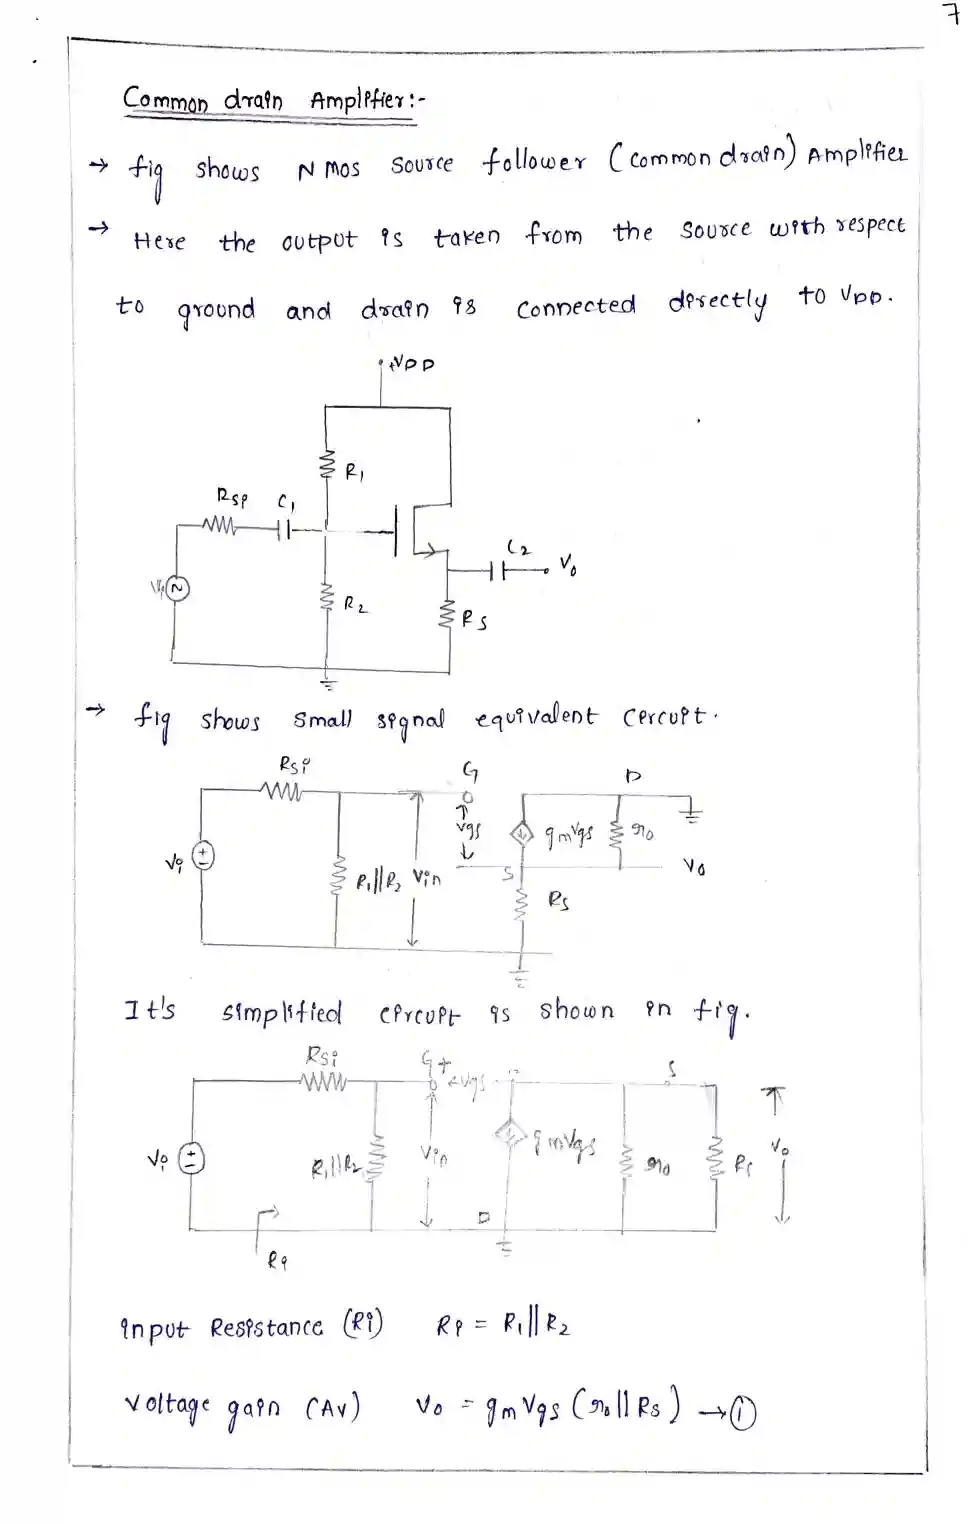 7
Common drain Amplifier:-
→ fig shows N mos Source follower (common drain) Amplifier
→ Here the output is taken from the source with respect
to ground and drain is connected directly to VDD.
+VDD
R1
Rsi C1
C2
Vo
Vi
R2
RS
→ fig shows small signal equivalent circuit.
Rsi G D
vgs gmVgs ro
Vi R1||R2 Vin S Vo
Rs
It's simplified circuit is shown in fig.
Rsi G + vgs - S
Vi R1||R2 Vin gmVgs ro Rs Vo
D
Ri
input Resistance (Ri) Ri = R1||R2
voltage gain (Av) Vo = gm Vgs (ro||Rs) → ①